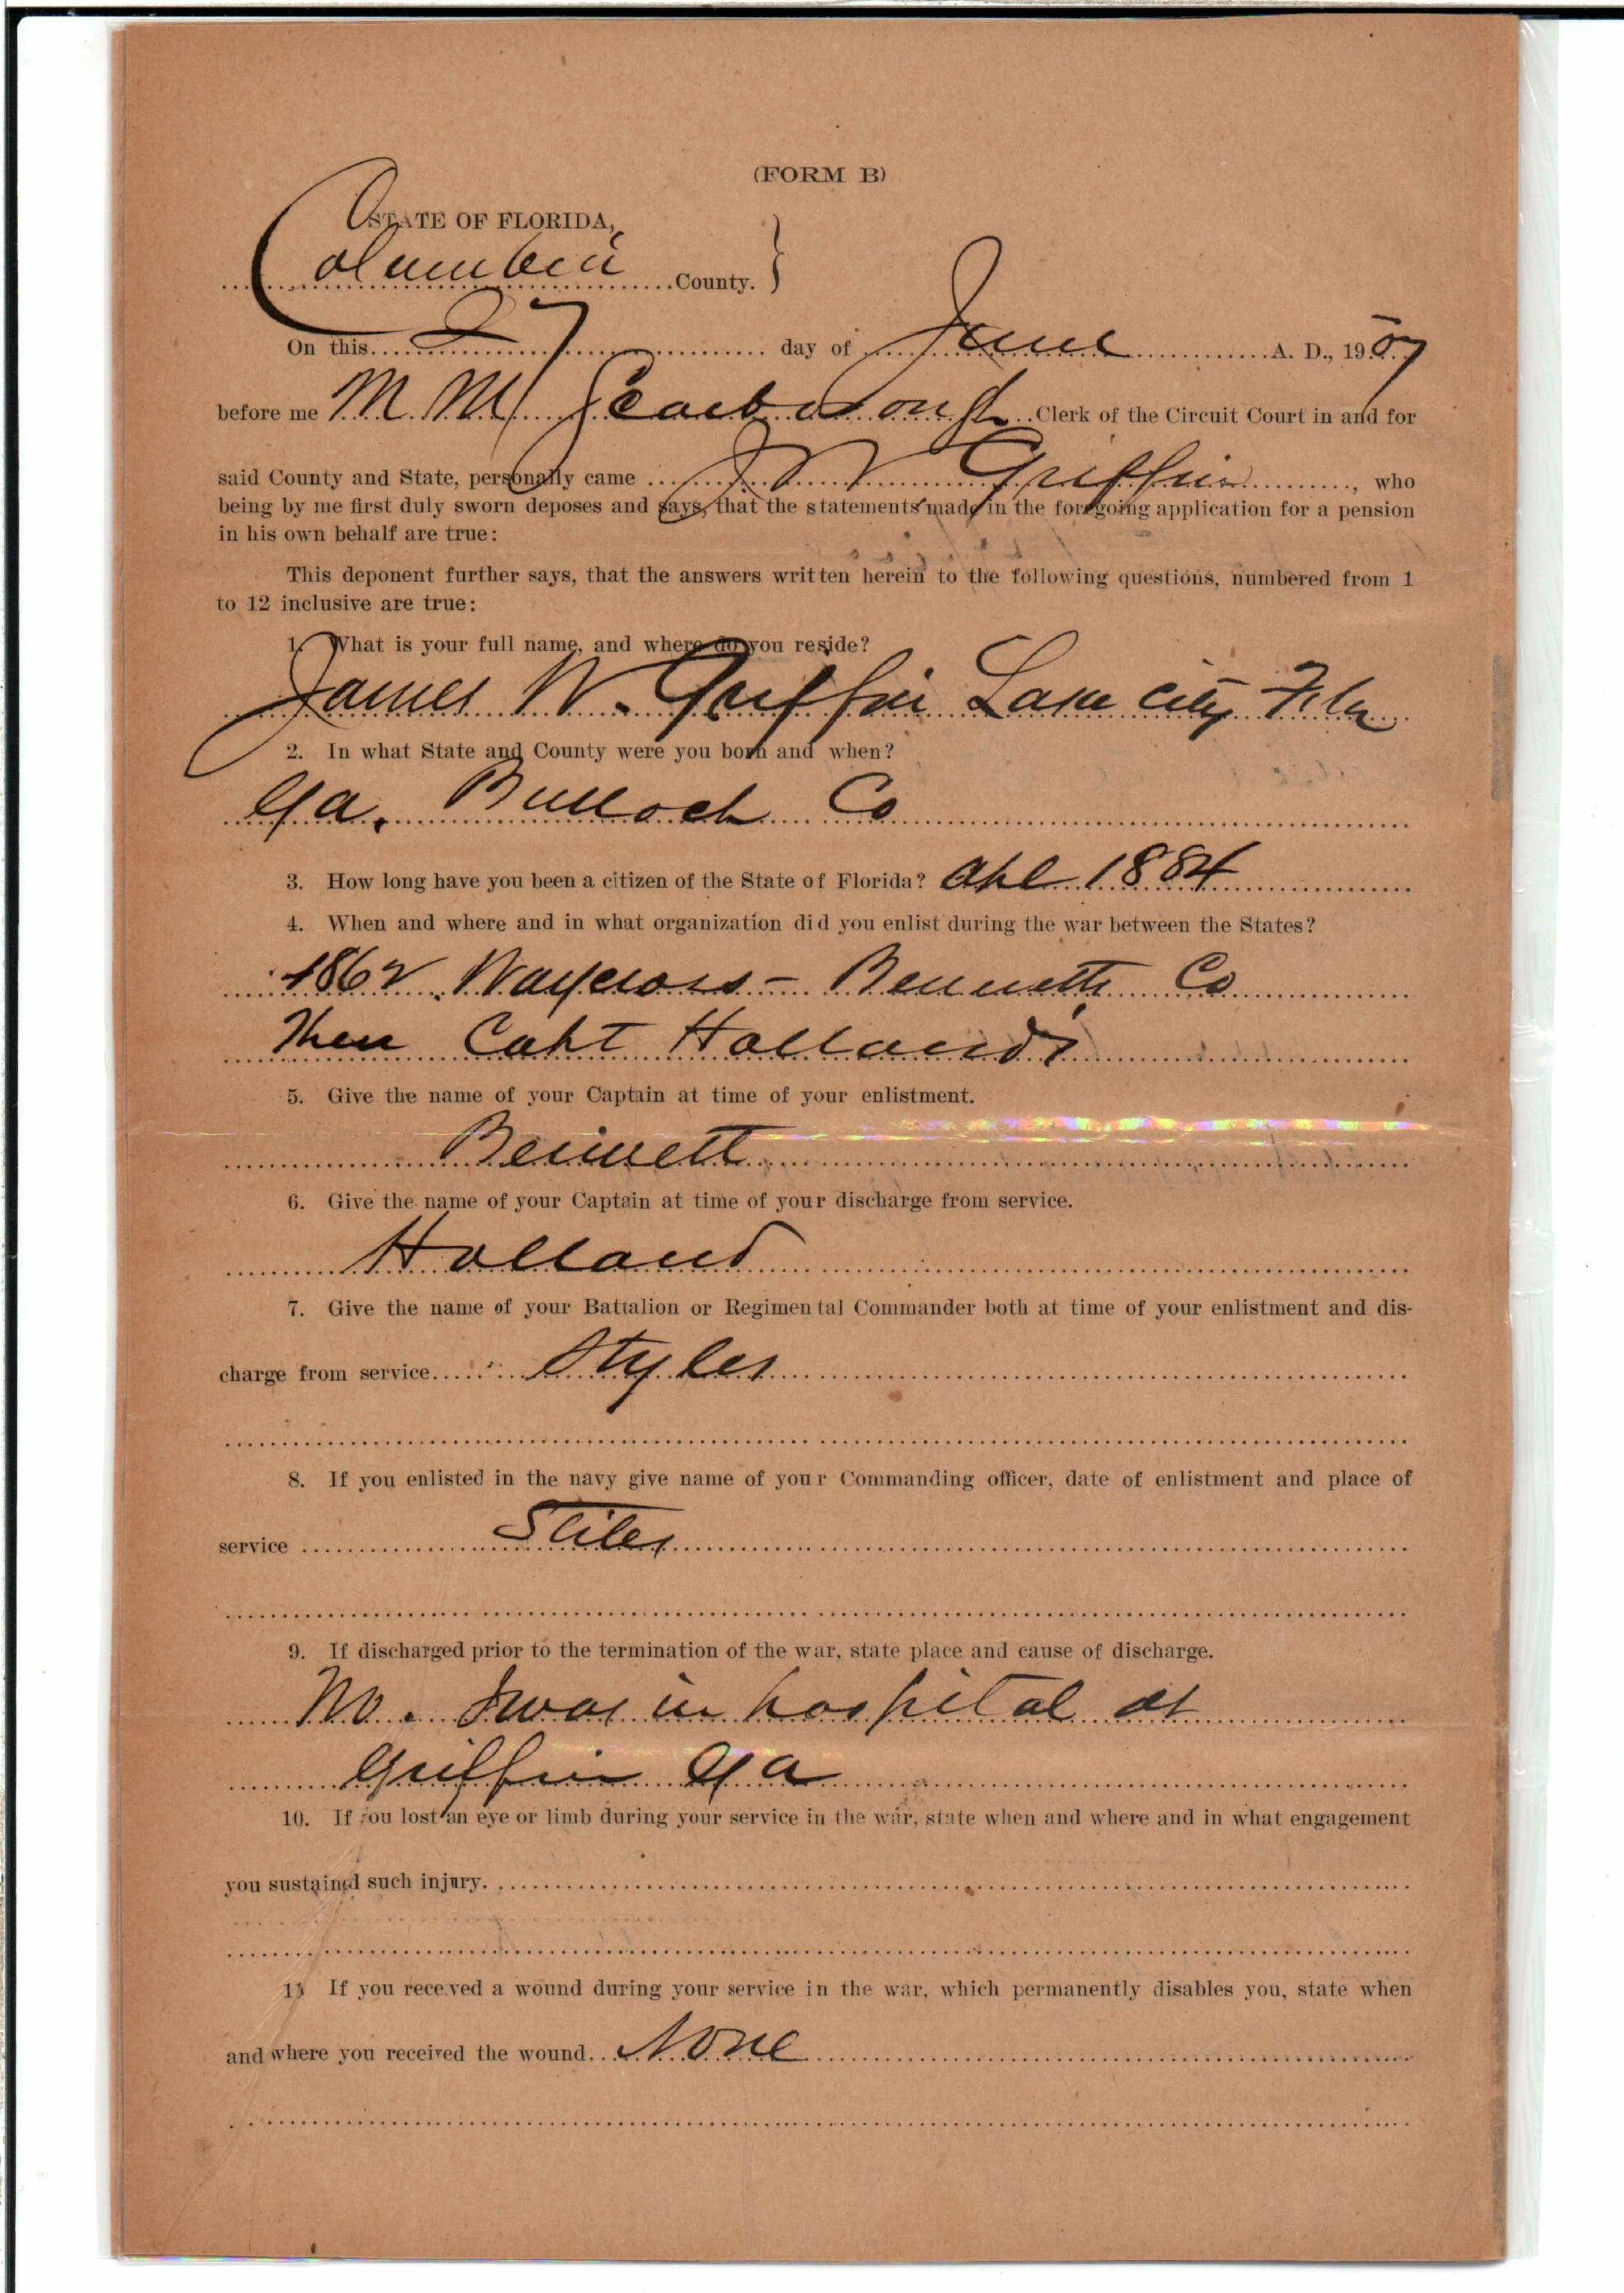 (FORM B)
STATE OF FLORIDA,
Columbia County.
On this 27 day of June A. D., 1907
before me M. M. Scarborough Clerk of the Circuit Court in and for
said County and State, personally came J W Griffin, who
being by me first duly sworn deposes and says, that the statements made in the foregoing application for a pension
in his own behalf are true:
This deponent further says, that the answers written herein to the following questions, numbered from 1
to 12 inclusive are true:
1. What is your full name, and where do you reside?
James W. Griffin Lake City Fla
2. In what State and County were you born and when?
Ga. Bulloch Co
3. How long have you been a citizen of the State of Florida? Apl 1884
4. When and where and in what organization did you enlist during the war between the States?
1862 Waycross - Bennetts Co
Then Capt Hollands
5. Give the name of your Captain at time of your enlistment.
Bennett
6. Give the name of your Captain at time of your discharge from service.
Holland
7. Give the name of your Battalion or Regimental Commander both at time of your enlistment and dis-
charge from service Styles
8. If you enlisted in the navy give name of your Commanding officer, date of enlistment and place of
service Stiles
9. If discharged prior to the termination of the war, state place and cause of discharge.
No. I was in hospital at
Griffin Ga
10. If you lost an eye or limb during your service in the war, state when and where and in what engagement
you sustained such injury.
11 If you received a wound during your service in the war, which permanently disables you, state when
and where you received the wound. None